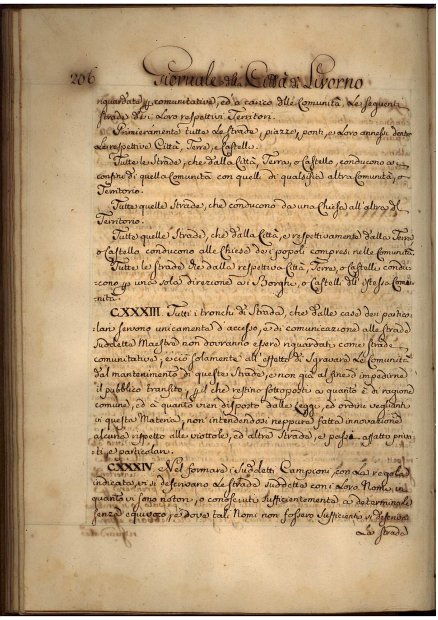 206 Giornale della Città di Livorno
riguardate p comunitative, ed a carico delle Comunità, Le seguenti
Strade de i loro respettivi Territori.
Primieramente tutte Le Strade, piazze, ponti, e Loro annessi dentro
Le respettive Città, Terre, e Castella.
Tutte Le Strade, che dalla Città, Terra, o Castello, conducono a i
confini di quella Comunità con quelli di qualsisia altra Comunità, o
Territorio.
Tutte quelle Strade, che conducono da una Chiesa all'altra del
Territorio.
Tutte quelle Strade, che dalla Città, e respettivamente dalla Terra
o Castello conducono alle Chiese de i popoli compresi nelle Comunità.
Tutte le Strade che dalla respettiva Città, Terra, o Castello, condu-
cono p una sola direzione a i Borghi, o Castelli dell'istessa Comu-
nità.
C.XXXIII. Tutti i tronchi di Strada, che dalle case dei partico-
lari servono unicamente d'accesso, e di comunicazione alle Strade
suddette Maestre non dovranno essere riguardati come Strade
comunitative, e ciò solamente all'effetto di Sgravare Le Comunità
dal mantenimento di queste Strade, e non già al fine d'impedirne
il pubblico transito, p il che restino sottoposti a quanto è di ragione
comune, ed a quanto vien disposto dalle Leggi, ed ordini veglianti
in questa Materia, non intendendosi neppure fatta innovazione
alcuna rispetto alle viottole, ed altre Strade, e passi affatto priva-
ti, e particolari.
CXXXIV. Nel formare i suddetti Campioni, con La regola
indicata, vi si descrivano Le Strade suddette con i Loro Nomi, in
quanto vi sono notori, o conosciuti Sufficientemente a determinarle
senza equivoco, e dove tali Nomi non fossero Sufficienti, si descriva
La Strada